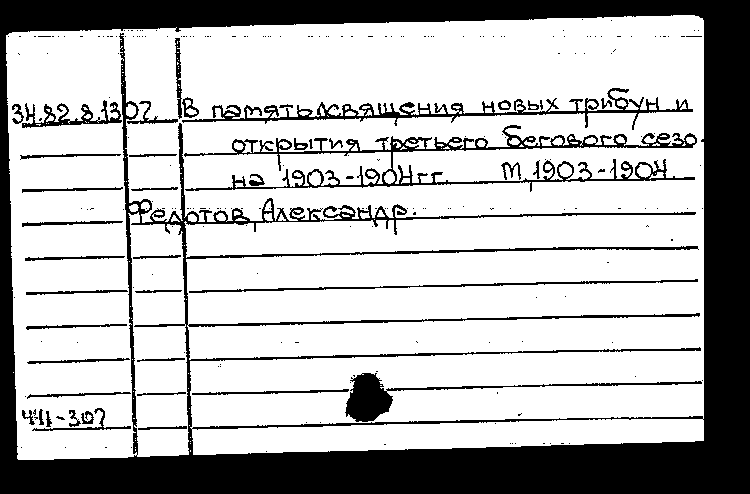 34.82.8.1307. В память освящения новых трибун и
открытия третьего бегового сезо-
на 1903-1904гг. М, 1903-1904.
Федотов, Александр.
441-307